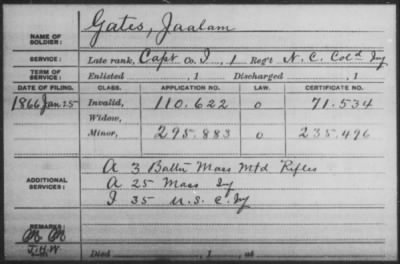 NAME OF SOLDIER: Gates, Jaalam
SERVICE: Late rank, Capt Co. I, 1 Reg't N. C. Col'd Inf
TERM OF SERVICE: Enlisted , 1 Discharged , 1
DATE OF FILING. CLASS. APPLICATION NO. LAW. CERTIFICATE NO.
1866 Jan 25 Invalid, 110.622 o 71.534
Widow,
Minor, 295.883 o 235.496
A 3 Batt'n Mass Mtd Rifles
ADDITIONAL SERVICES: A 25 Mass Inf
I 35 U.S.C. Inf
REMARKS:
J.H.W.
Died , 1 , at